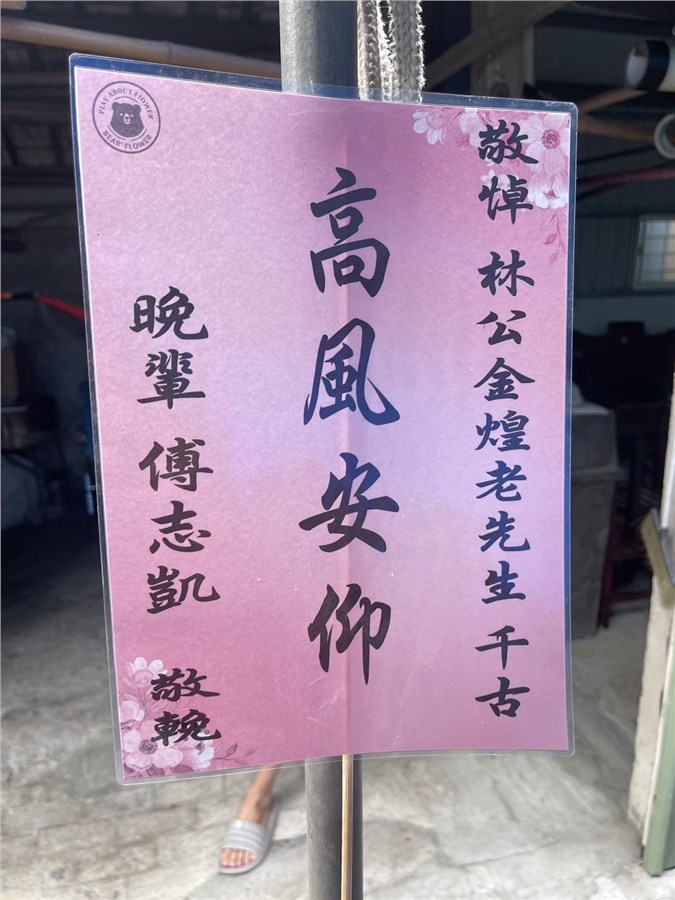 敬悼 林公金煌老先生 千古
高風安仰
晚輩 傅志凱 敬輓
PLAY ABOUT FLOWER
BEAR® FLOWER